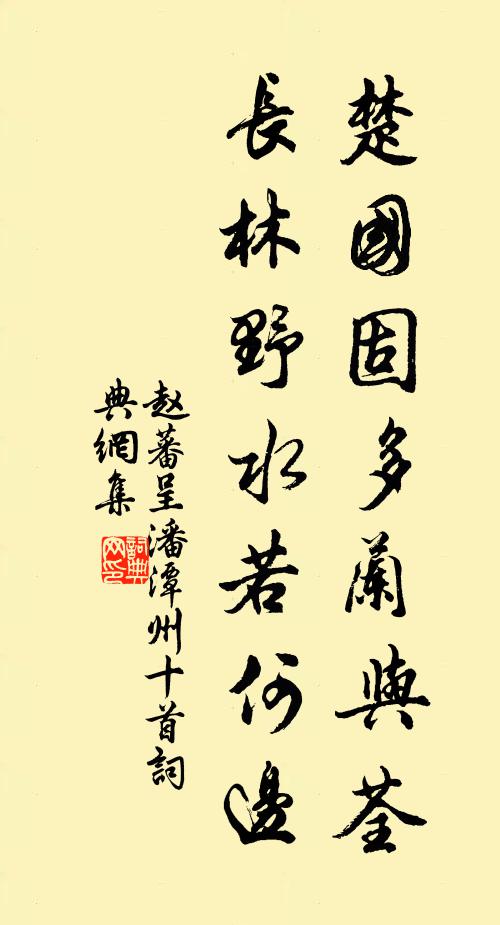 楚國固多蘭與荃
長林野水若何邊
赵蕃呈潘潭州十首詞
典網集
詞典
网印